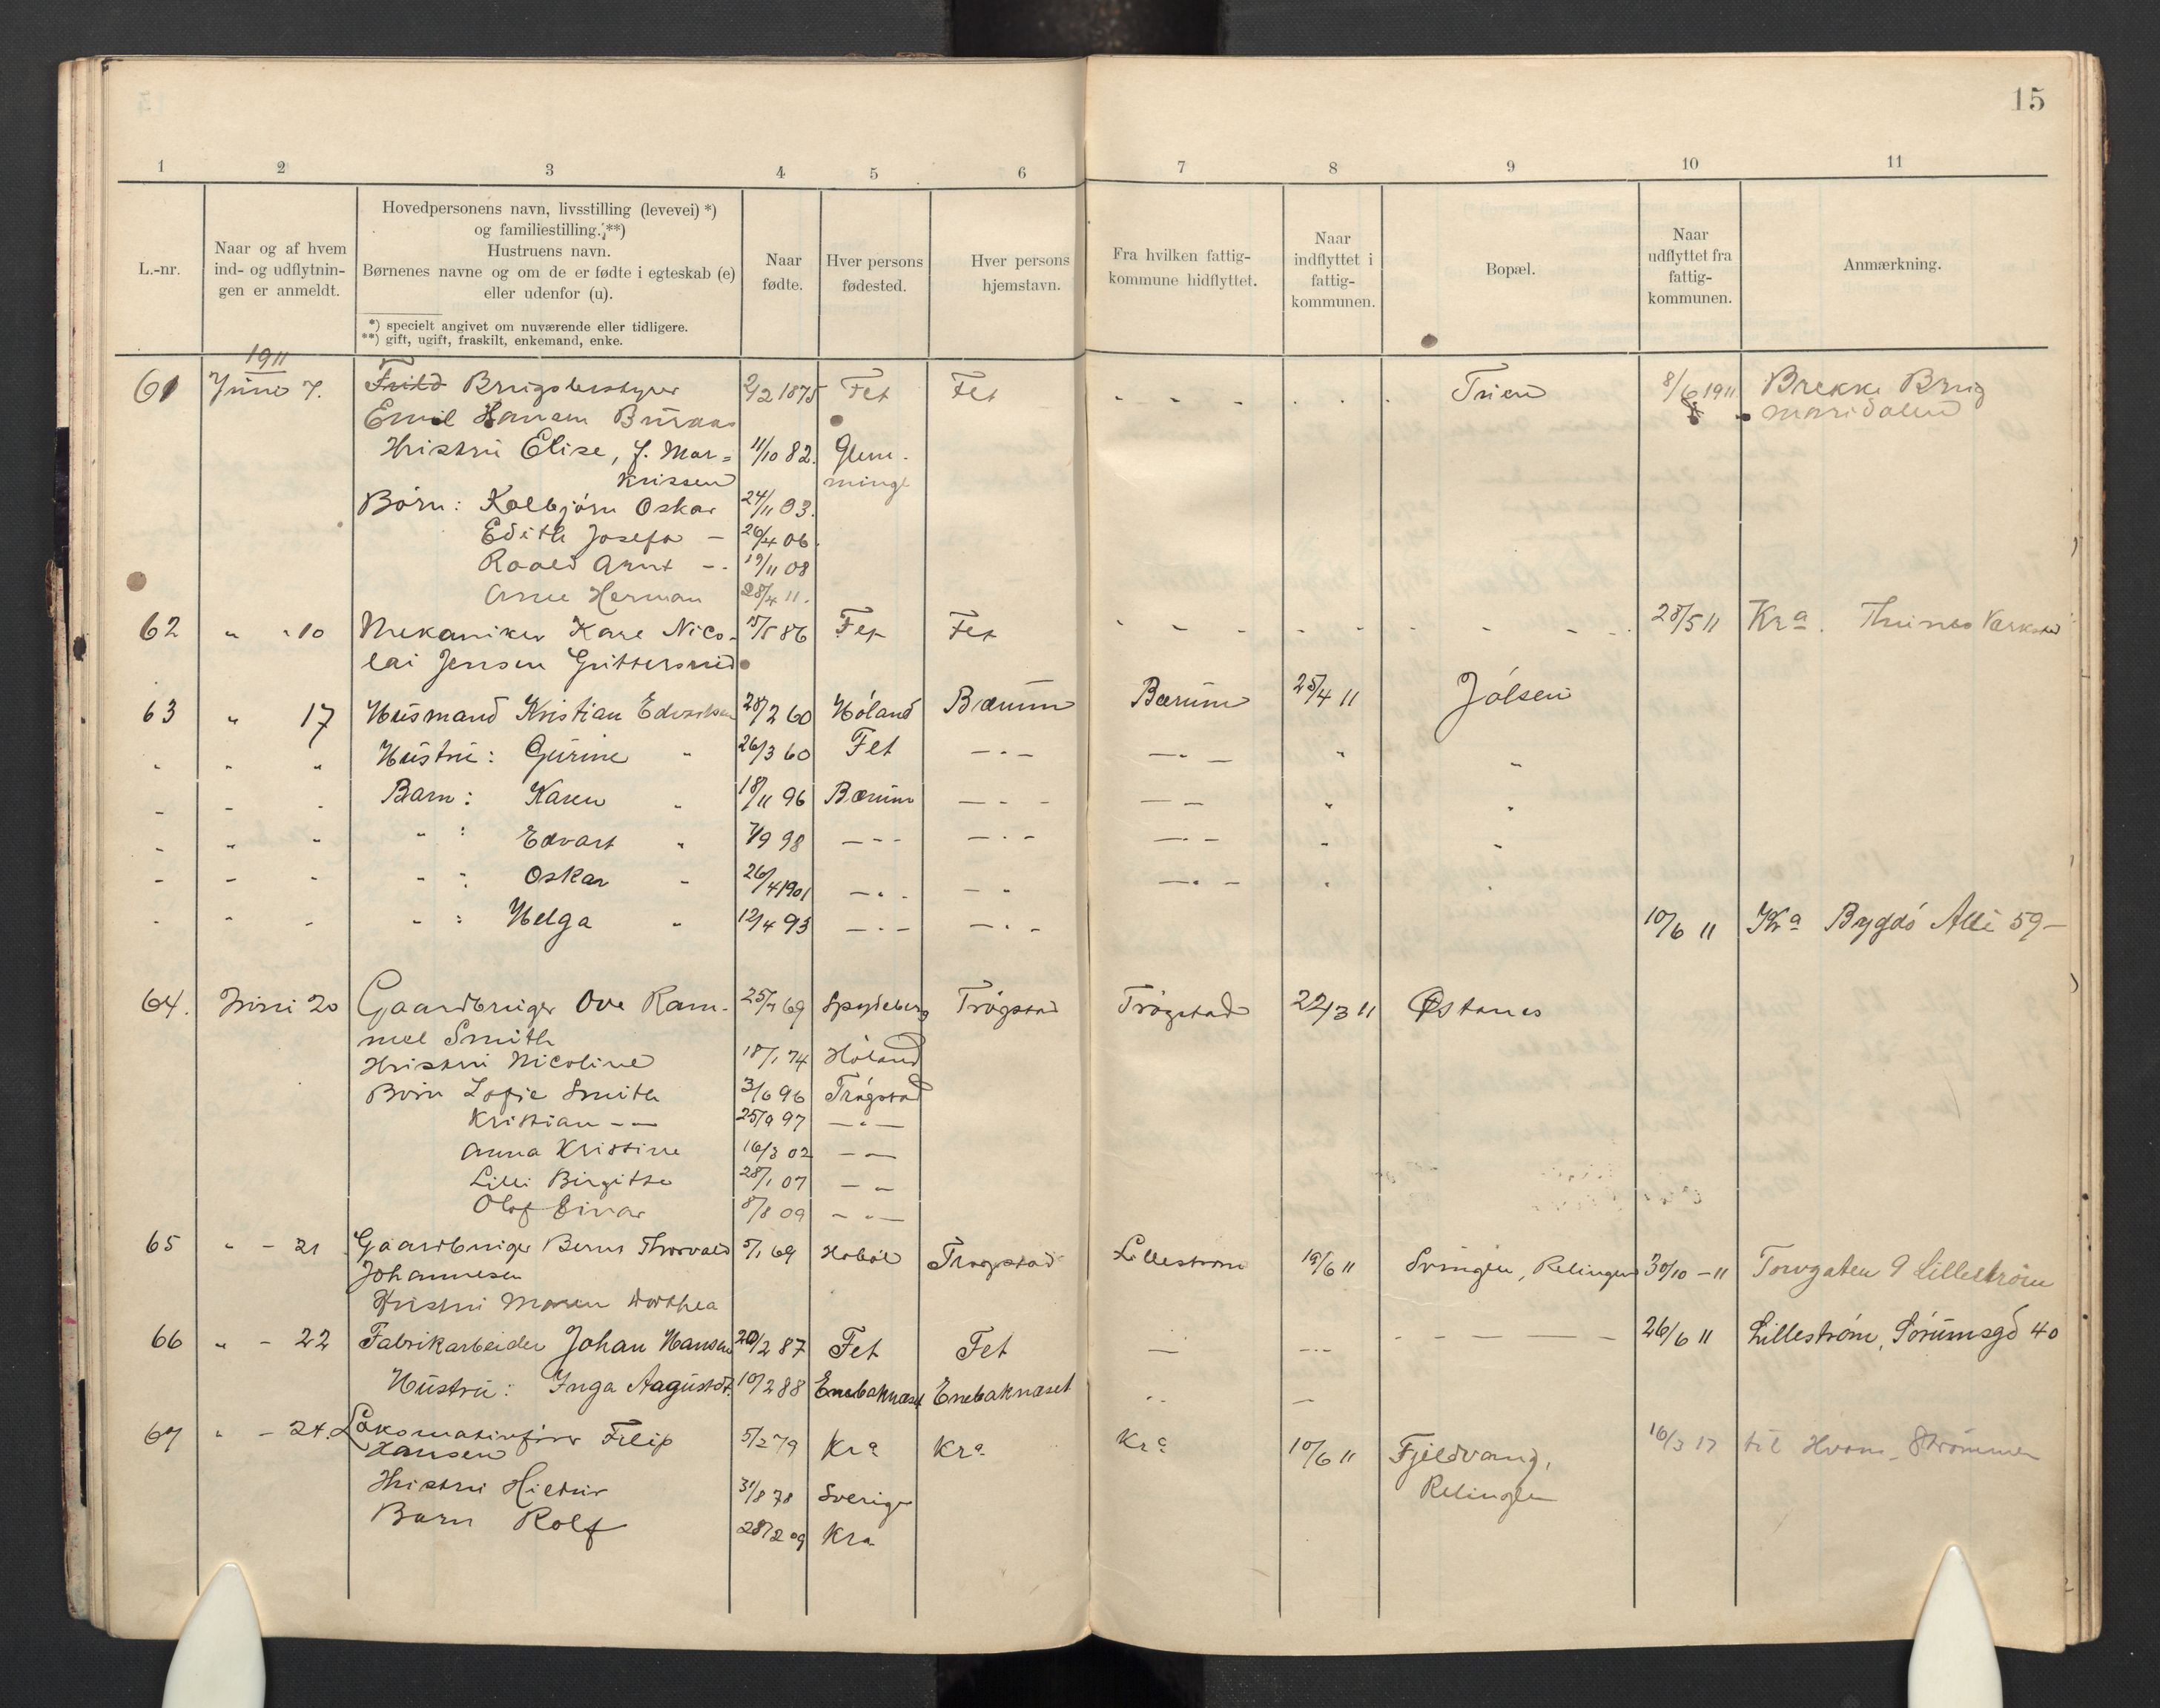 15
1 2 3 4 5 6 7 8 9 10 11
L.-nr.
Naar og af hvem
ind- og udflytnin-
gen er anmeldt.
Hovedpersonens navn, livsstilling (levevei) *)
og familiestilling. **)
Hustruens navn.
Børnenes navne og om de er fødte i egteskab (e)
eller udenfor (u).
*) specielt angivet om nuværende eller tidligere.
**) gift, ugift, fraskilt, enkemand, enke.
Naar
fødte.
Hver persons
fødested.
Hver persons
hjemstavn.
Fra hvilken fattig-
kommune hidflyttet.
Naar
indflyttet i
fattig-
kommunen.
Bopæl.
Naar
udflyttet fra
fattig-
kommunen.
Anmærkning.
1911
61 Juni 7. Brugsbestyrer 2/2 1875 Fet Fet - - - - - - 8/6 1911 Brekke Brug
Emil Hansen Buraas Maridalen
Hustru Elise, f. Mar- 11/10 82. Glem-
krissen minge
Börn: Kolbjörn Oskar 24/11 03.
Edith Josefa - 26/4 06.
Roald Arnt - 19/11 08
Arne Herman 28/4 11.
62 " " 10 Mekaniker Karl Nico- 15/5 86 Fet Fet - - - - - - - - 28/5 11 Kra. Thunes Verksted
lai Jensen
63 " 17 Husmand Kristian Edvardsen 28/2 60 Höland Bærum Bærum 25/4 11 Jölsen
" " " Hustru: Gurine " 26/3 60 Fet - " - - " - " "
" " " Barn: Karen " 18/11 96 Bærum - - - - - " "
" " " " : Edvart " 7/9 98 - - - - " - - " - " "
" " " " : Oskar " 26/4 1901 - " - - " - " - " "
" " " " : Helga " 12/4 93 - " - - " - 10/6 11 Kra Bygdö Allé 59 -
64. Juni 20 Gaardbruger Ove Ram- 25/7 69 Spydeberg Trögstad Trögstad 22/3 11 Østanes
mel Smith
Hustru Nicoline 18/1 74 Höland
Börn Sofie Smith 3/6 96 Trögstad
Kristian - - 25/9 97 - " -
Anna Kristine 16/3 02 - -
Lilli Birgitte 28/1 07 - "
Olaf Einar 8/8 09 - " -
65 " - 21 Gaardbruger Bernt Thorvald 5/1 69 Hoböl Trögstad Lilleström 19/6 11 Svingen, Relingen 30/10 - 11 Torvgaten 9 Lilleström
Johannesen
Hustru Maren Dorthea
66 " - 22 Fabrikarbeider Johan Hansen 20/2 87 Fet Fet - - " - - - - - - - 26/6 11 Lilleström, Sörumsgd 40
Hustru: Inga Aagustdt. 10/2 88 Enebaknæset Enebaknæset " " -
67 " - 24. Lokomotivfører Filip 5/2 79 Kra Kra. Kra 10/6 11 Fjeldvang, 16/3 17 til Hvam - Strömmen
Hansen
Hustru 31/8 78 Sverige Relingen
Barn Rolf 28/2 09 Kra